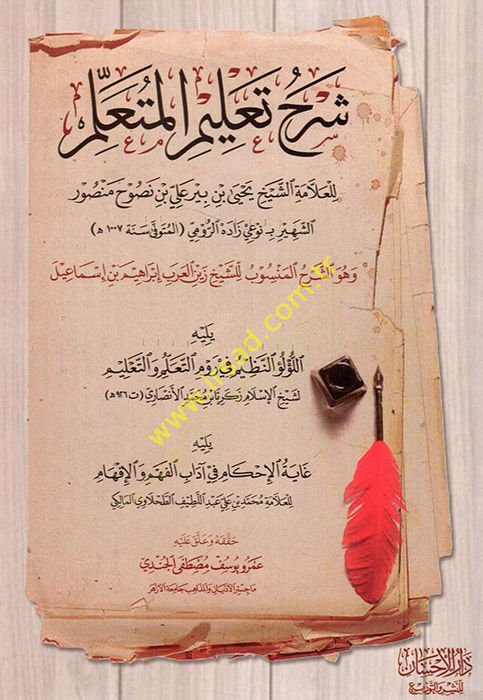 شَرْحُ تَعْلِيمِ المُتَعَلِّمِ
لِلعَلَّامَةِ الشَّيْخِ يَحْيَى بْنِ بِير عَلِيّ بْنِ نَصُوح مَنْصُور
الشَّهِيرِ بِـ نَوْعِي زَادَه الرُّومِيّ (المُتَوفَّى سَنَة ١٠٠٧ ھ)
وَهُوَ الشَّرْحُ المَنْسُوبُ لِلشَّيْخِ زَيْنِ العَرَبِ إِبْرَاهِيمَ بْنِ إِسْمَاعِيلَ
يَلِيهِ
اللُّؤْلُؤُ النَّظِيمُ فِي رَوْمِ التَّعَلُّمِ وَالتَّعْلِيمِ
لشَيْخِ الإِسْلَامِ زَكَرِيَّا بْنِ مُحَمَّدٍ الأَنْصَارِيِّ (ت ٩٢٦ھ)
يَلِيهِ
غَايَةُ الإِحْكَامِ فِي آدَابِ الفَهْمِ وَالإِفْهَامِ
لِلعَلَّامَةِ مُحَمَّد بْنِ عَلِي عَبْدِ اللَّطِيفِ الطَّحْلَاوِي المَالِكِي
حَقَّقَهُ وَعَلَّقَ عَلَيْهِ
عَمْرُو يُوسُفْ مُصْطَفَى الجُنْدِي
مَاجِسْتِير الأَدْيَانِ وَالمَذَاهِبِ جَامِعَة الأَزْهَر
دَارُ الإِحْسَانِ
لِلنَّشْرِ وَالتَّوْزِيعِ